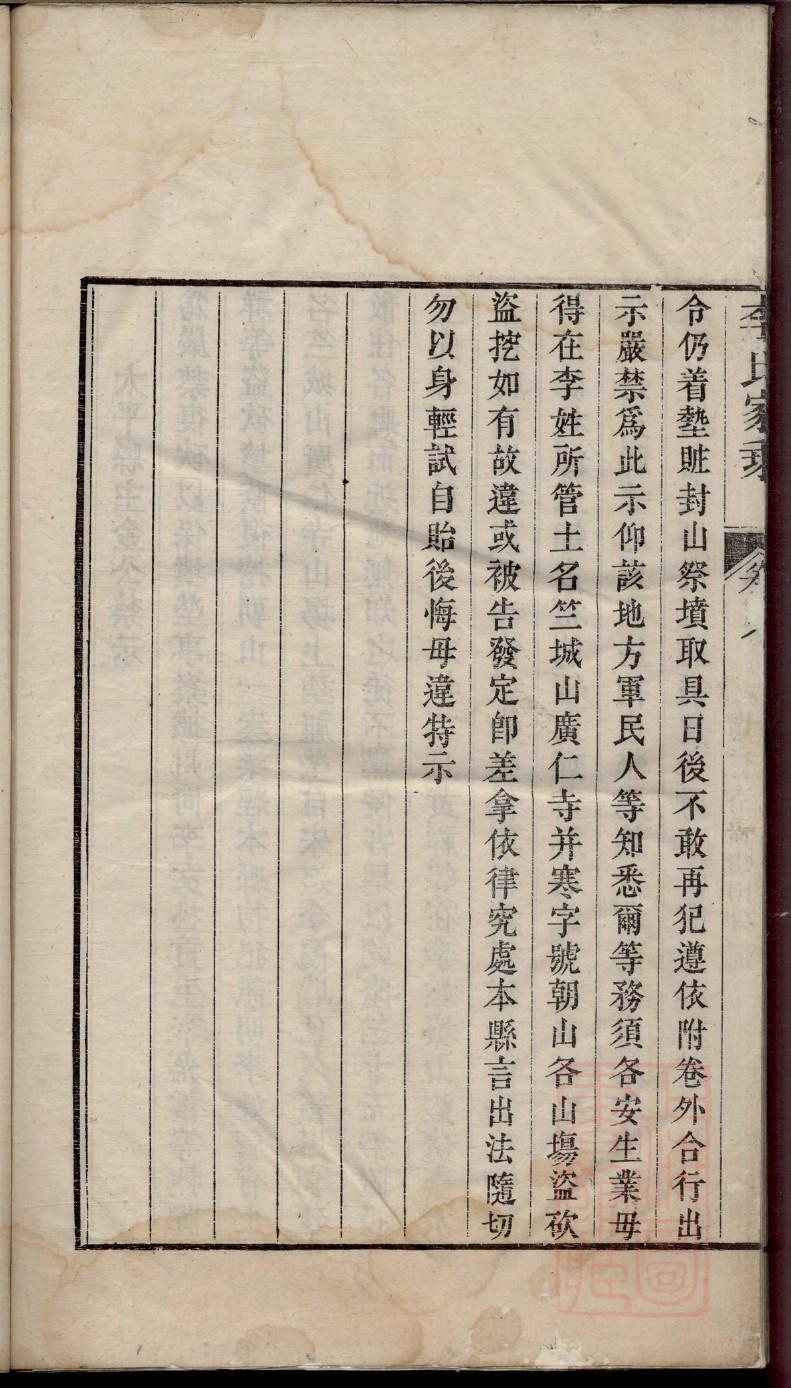 李氏家乘 卷八
令仍着墊賍封山祭墳取具日後不敢再犯遵依附卷外合行出
示嚴禁爲此示仰該地方軍民人等知悉爾等務須各安生業毋
得在李姓所管土名竺城山廣仁寺并寒字號朝山各山塲盜砍
盜挖如有故違或被告發定卽差拿依律究處本縣言出法隨切
勿以身輕試自貽後悔毋違特示